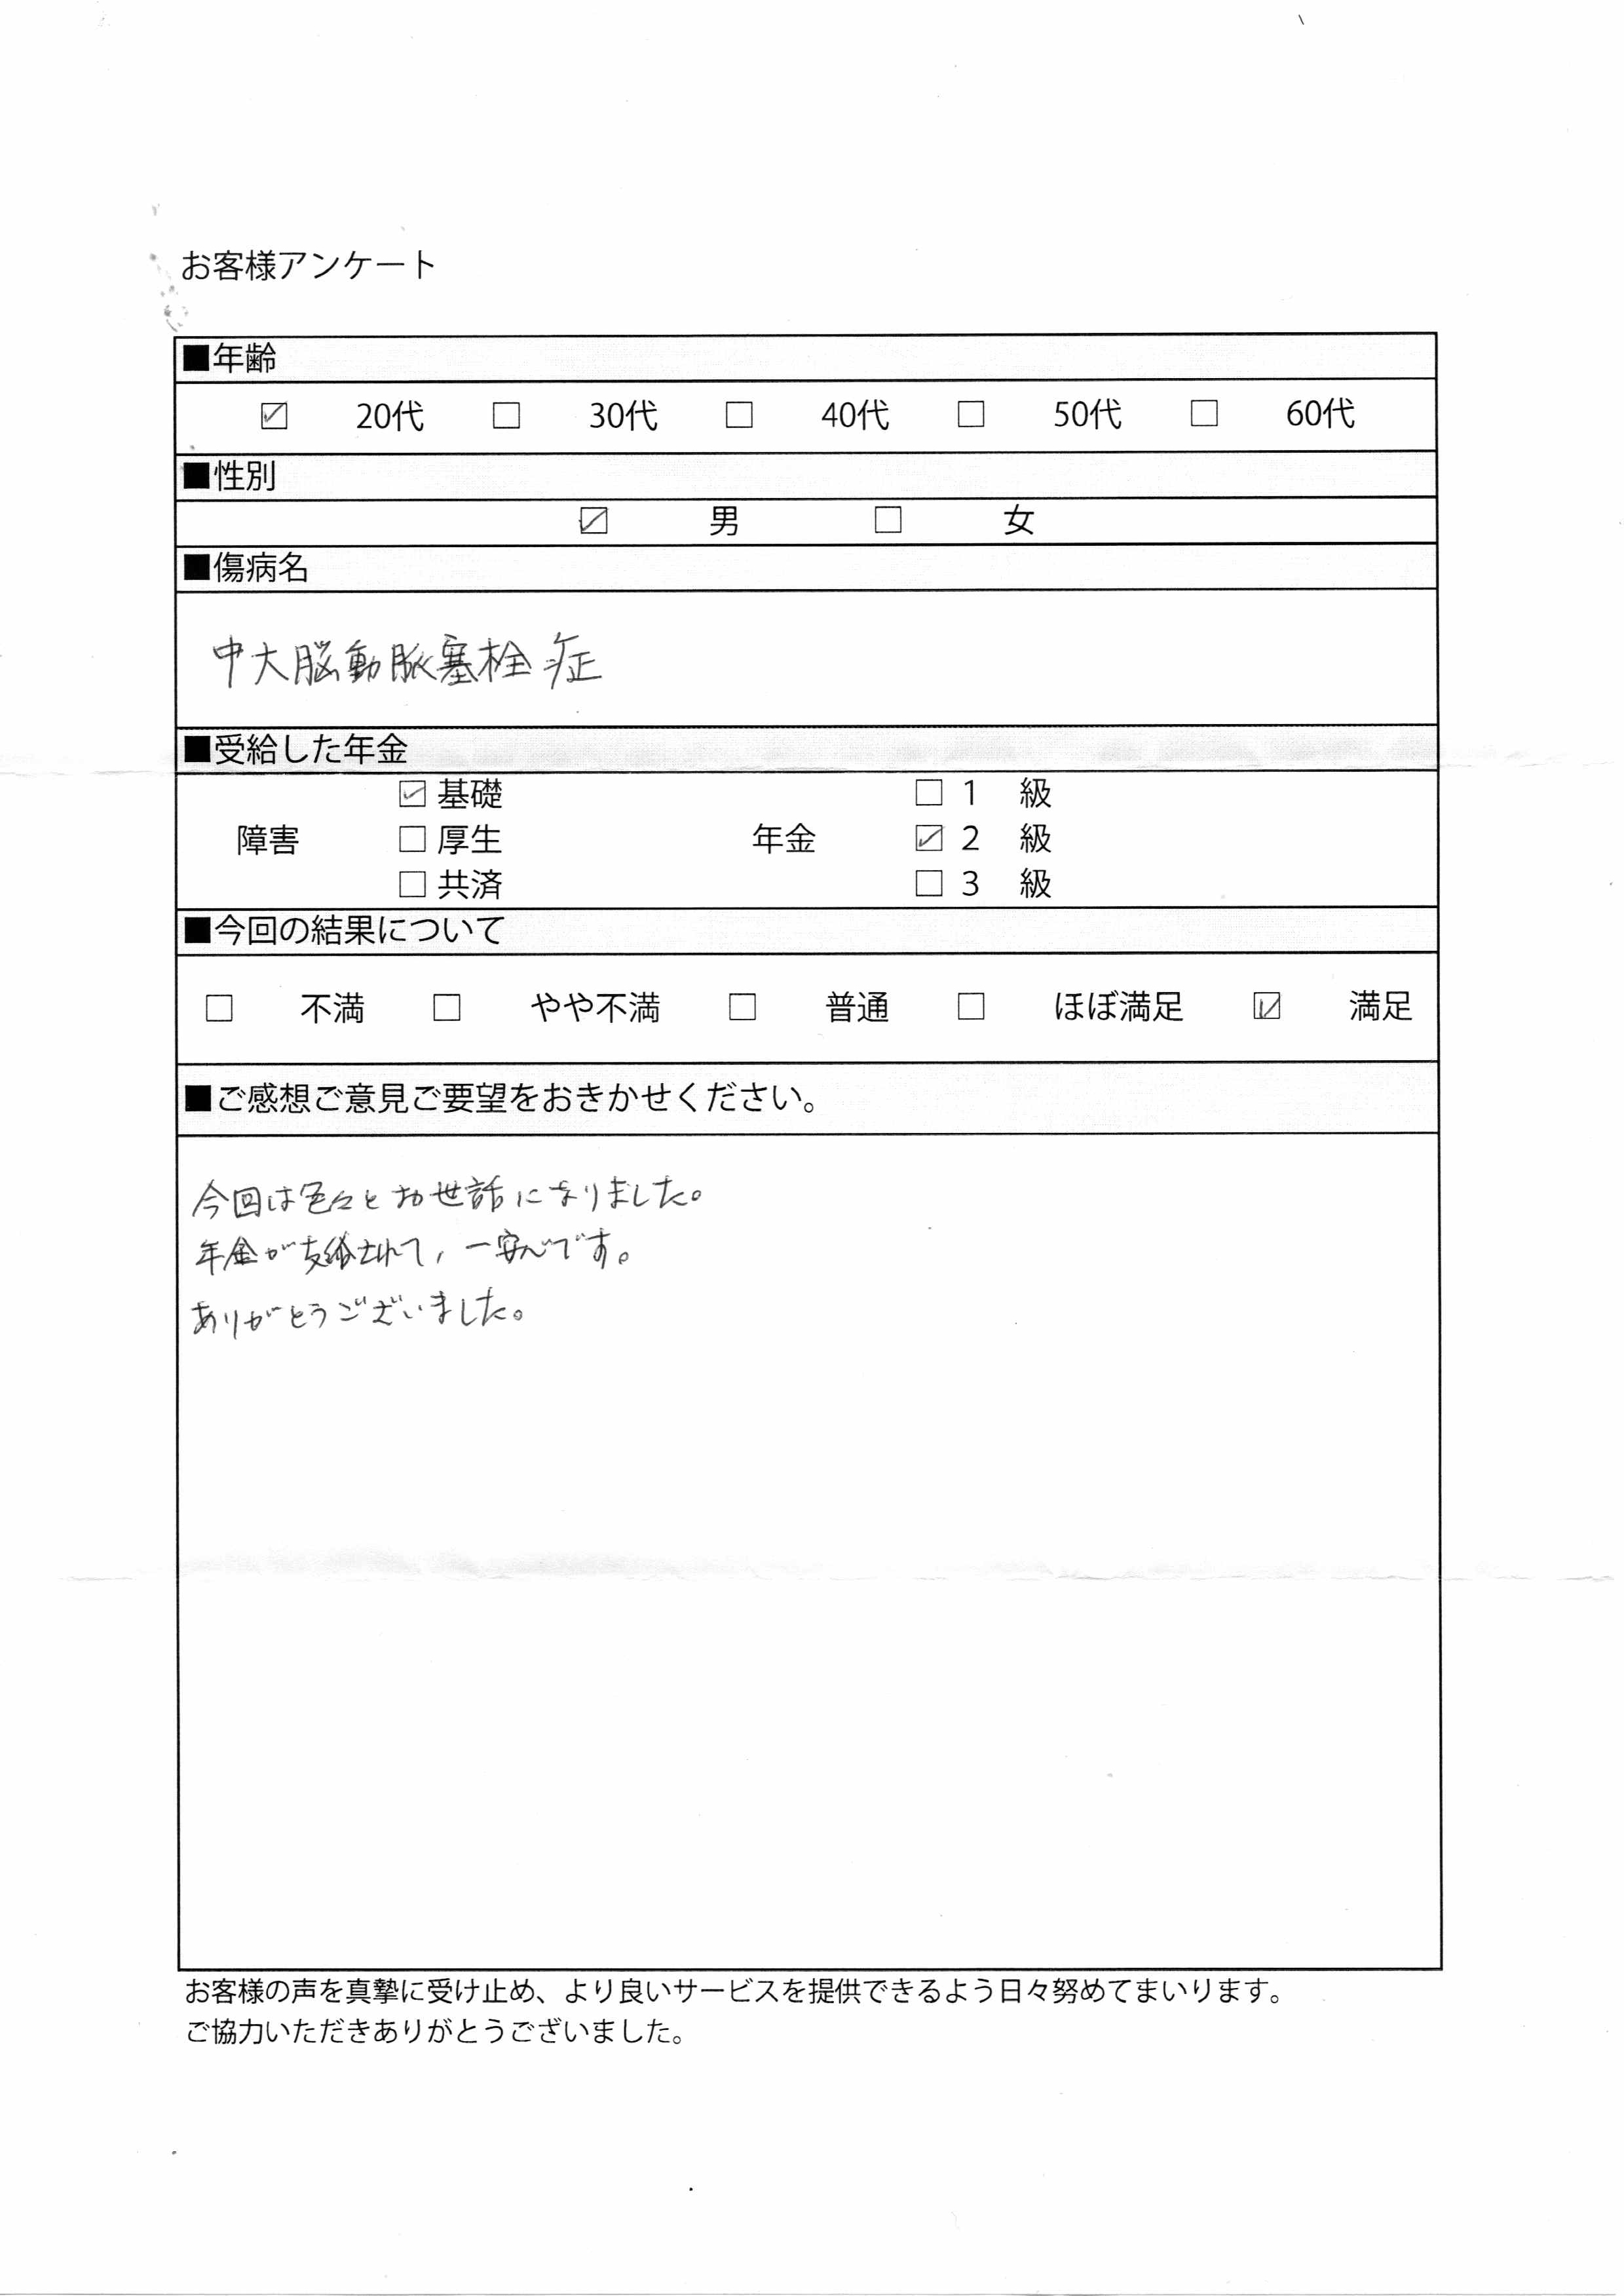 お客様アンケート
■年齢
☑ 20代 □ 30代 □ 40代 □ 50代 □ 60代
■性別
☑ 男 □ 女
■傷病名
中大脳動脈塞栓症
■受給した年金
☑ 基礎 □ 1 級
障害 □ 厚生 年金 ☑ 2 級
□ 共済 □ 3 級
■今回の結果について
□ 不満 □ やや不満 □ 普通 □ ほぼ満足 ☑ 満足
■ご感想ご意見ご要望をおきかせください。
今回は色々とお世話になりました。
年金が支給されて、一安心です。
ありがとうございました。
お客様の声を真摯に受け止め、より良いサービスを提供できるよう日々努めてまいります。
ご協力いただきありがとうございました。